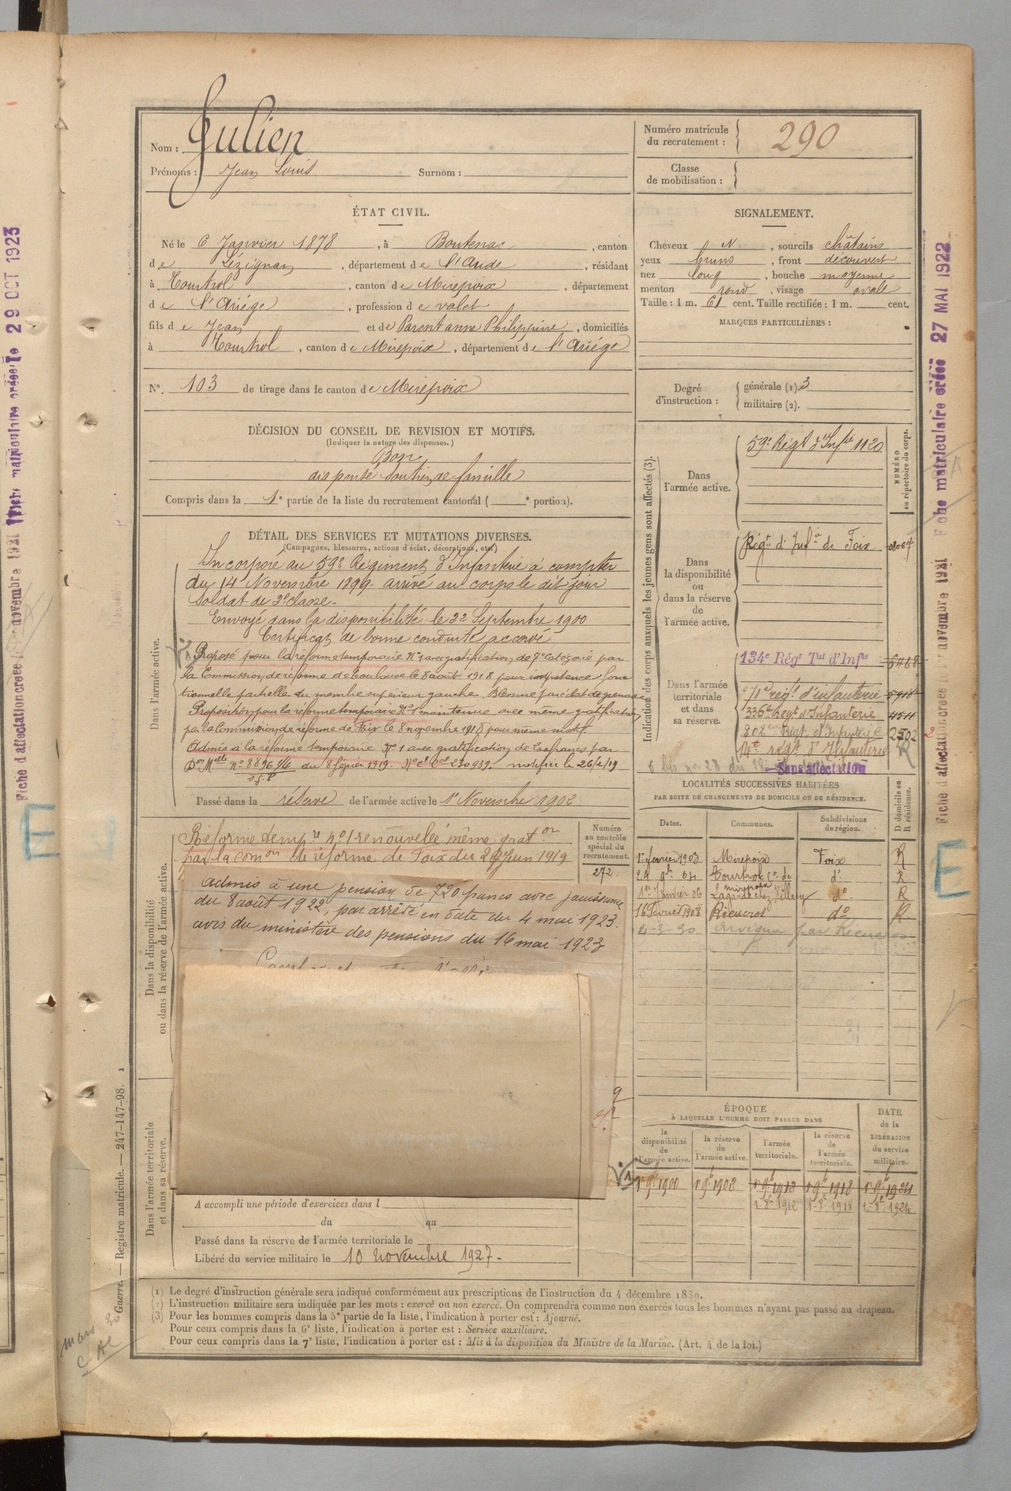 Nom : Julien
Prénoms : Jean Louis Surnom :
Numéro matricule du recrutement : 290
Classe de mobilisation :
ÉTAT CIVIL.
Né le 6 Janvier 1878, à Boutenac, canton
de Lézignan, département de l'Aude, résidant
à Tourtrol, canton de Mirepoix, département
de l'Ariège, profession de valet
fils de Jean et de Parent anne Philippine, domiciliés
à Tourtrol, canton de Mirepoix, département de l'Ariège
N°. 103 de tirage dans le canton de Mirepoix
SIGNALEMENT.
Cheveux N, sourcils châtains
yeux bruns, front découvert
nez long, bouche moyenne
menton rond, visage ovale
Taille : 1 m. 61 cent. Taille rectifiée : 1 m. cent.
MARQUES PARTICULIÈRES :
Degré d'instruction : générale (1). 3
militaire (2).
DÉCISION DU CONSEIL DE REVISION ET MOTIFS.
(Indiquer la nature des dispenses.)
Bon
dispensé soutien de famille
Compris dans la 1e partie de la liste du recrutement cantonal ( e portion).
DÉTAIL DES SERVICES ET MUTATIONS DIVERSES.
(Campagnes, blessures, actions d'éclat, décorations, etc.)
Dans l'armée active.
Incorporé au 59e Régiment d'Infanterie à compter
du 14 Novembre 1899 arrivé au corps le dit jour
soldat de 2e classe.
Envoyé dans la disponibilité le 22 Septembre 1900
Certificat de bonne conduite accordé
Proposé pour la réforme temporaire N°1 avec gratification de 7e catégorie par
la Commission de réforme de Toulouse le 5 août 1918 pour impotence fonc
tionnelle partielle du membre supérieur gauche. Blessure par éclat de grenade
Proposition pour la réforme temporaire N°1 maintenue avec même gratification
par la Commission de réforme de Foix le 8 novembre 1918 pour même motif.
Admis à la réforme temporaire N°1 avec gratification de francs par
du 8 février 1919. notifiée le 26/2/19
Passé dans la réserve de l'armée active le 1er Novembre 1902
Indication des corps auxquels les jeunes gens sont affectés (3).
NUMÉRO au répertoire du corps.
Dans l'armée active.
59e Régt d'Infie 1120
Dans la disponibilité ou dans la réserve de l'armée active.
Régt d'Infie de Foix
Dans l'armée territoriale et dans sa réserve.
134e Régt Tal d'Infie
336e Régt d'Infanterie 4511
Régt d'Infanterie 2502
14e régt d'Infanterie
Sans affectation
LOCALITÉS SUCCESSIVES HABITÉES
PAR SUITE DE CHANGEMENTS DE DOMICILE OU DE RÉSIDENCE.
Dates. Communes. Subdivisions de région. D domicile ou R résidence.
1er février 1903 Mirepoix Foix R
Tourtrol do R
do R
16 février 1908 Rieucros do R
Dans la disponibilité ou dans la réserve de l'armée active.
Numéro au contrôle spécial du recrutement.
272
Réforme tempre n°1 renouvelée même graton
par la comon de réforme de Foix du 24 juin 1919
Admis à une pension de 720 francs avec jouissance
du 8 août 1922, par arrêté en date du 4 mai 1923
avis du ministère des pensions du 16 mai 1923
Dans l'armée territoriale et dans sa réserve.
A accompli une période d'exercices dans l
du au
Passé dans la réserve de l'armée territoriale le
Libéré du service militaire le 10 novembre 1927.
ÉPOQUE
À LAQUELLE L'HOMME DOIT PASSER DANS
DATE de la LIBÉRATION du service militaire.
la disponibilité de l'armée active. la réserve de l'armée active. l'armée territoriale. la réserve de l'armée territoriale.
1er 9bre 1900 1er 9bre 1902 1er 9bre 1912 1er 9bre 1918 1er 9bre 1924
(1) Le degré d'instruction générale sera indiqué conformément aux prescriptions de l'instruction du 4 décembre 1889.
(2) L'instruction militaire sera indiquée par les mots : exercé ou non exercé. On comprendra comme non exercés tous les hommes n'ayant pas passé au drapeau.
(3) Pour les hommes compris dans la 5e partie de la liste, l'indication à porter est : Ajourné.
Pour ceux compris dans la 6e liste, l'indication à porter est : Service auxiliaire.
Pour ceux compris dans la 7e liste, l'indication à porter est : Mis à la disposition du Ministre de la Marine. (Art. 4 de la loi.)
Guerre. — Registre matricule. — 247-147-98.
Fiche matriculaire créée 27 MAI 1922
Fiche d'affectation créée novembre 1921
Fiche matriculaire créée le 29 OCT 1923
Fiche d'affectation créée novembre 1921
E
E